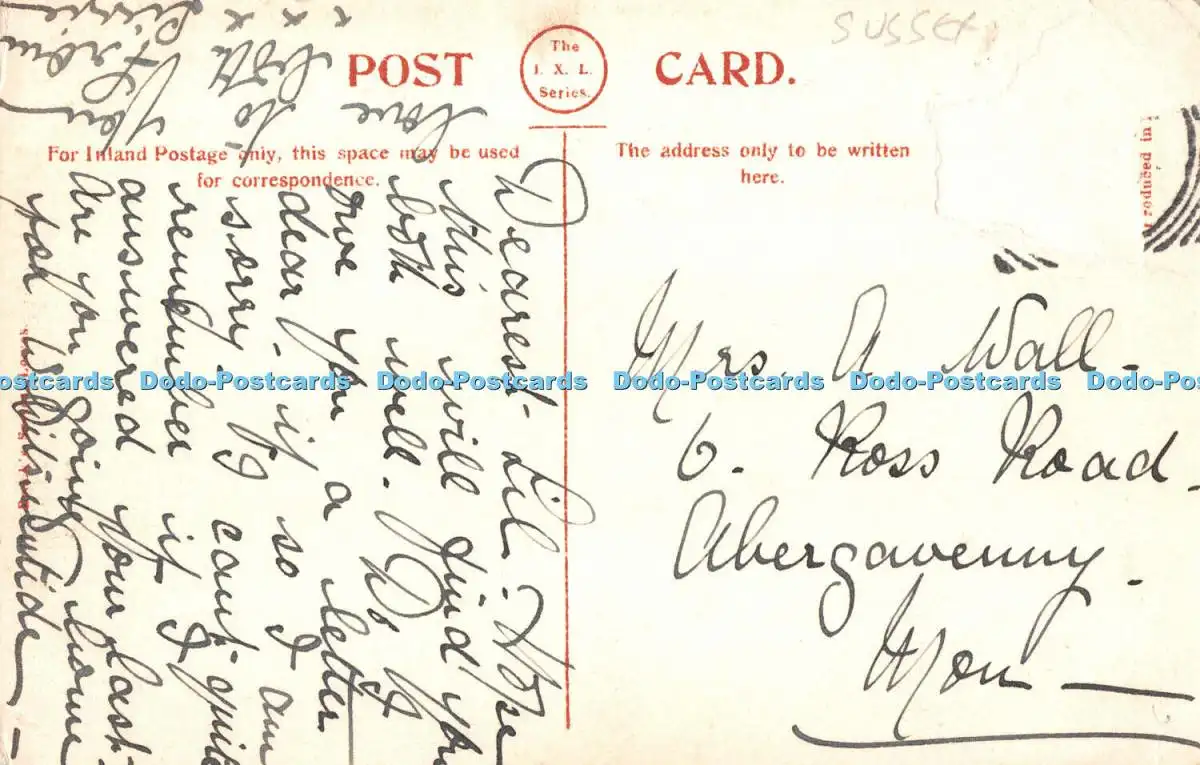 SUSSEX
POST CARD.
The
I. X. L.
Series.
For Inland Postage only, this space may be used
for correspondence.
The address only to be written
here.
roduced in
Dearest Lil. Hope
this will find you
both well. Do I
owe you a letter
dear. if so I am
sorry. I cant quite
remember if I
answered your last.
Are you going home
for Whitsuntide
love
to
both
x x x
from
Mrs. A Wall.
6. Ross Road.
Abergavenny.
Mon
Dodo-Postcards Dodo-Postcards Dodo-Postcards Dodo-Postcards Dodo-Postcards Dodo-Postcards